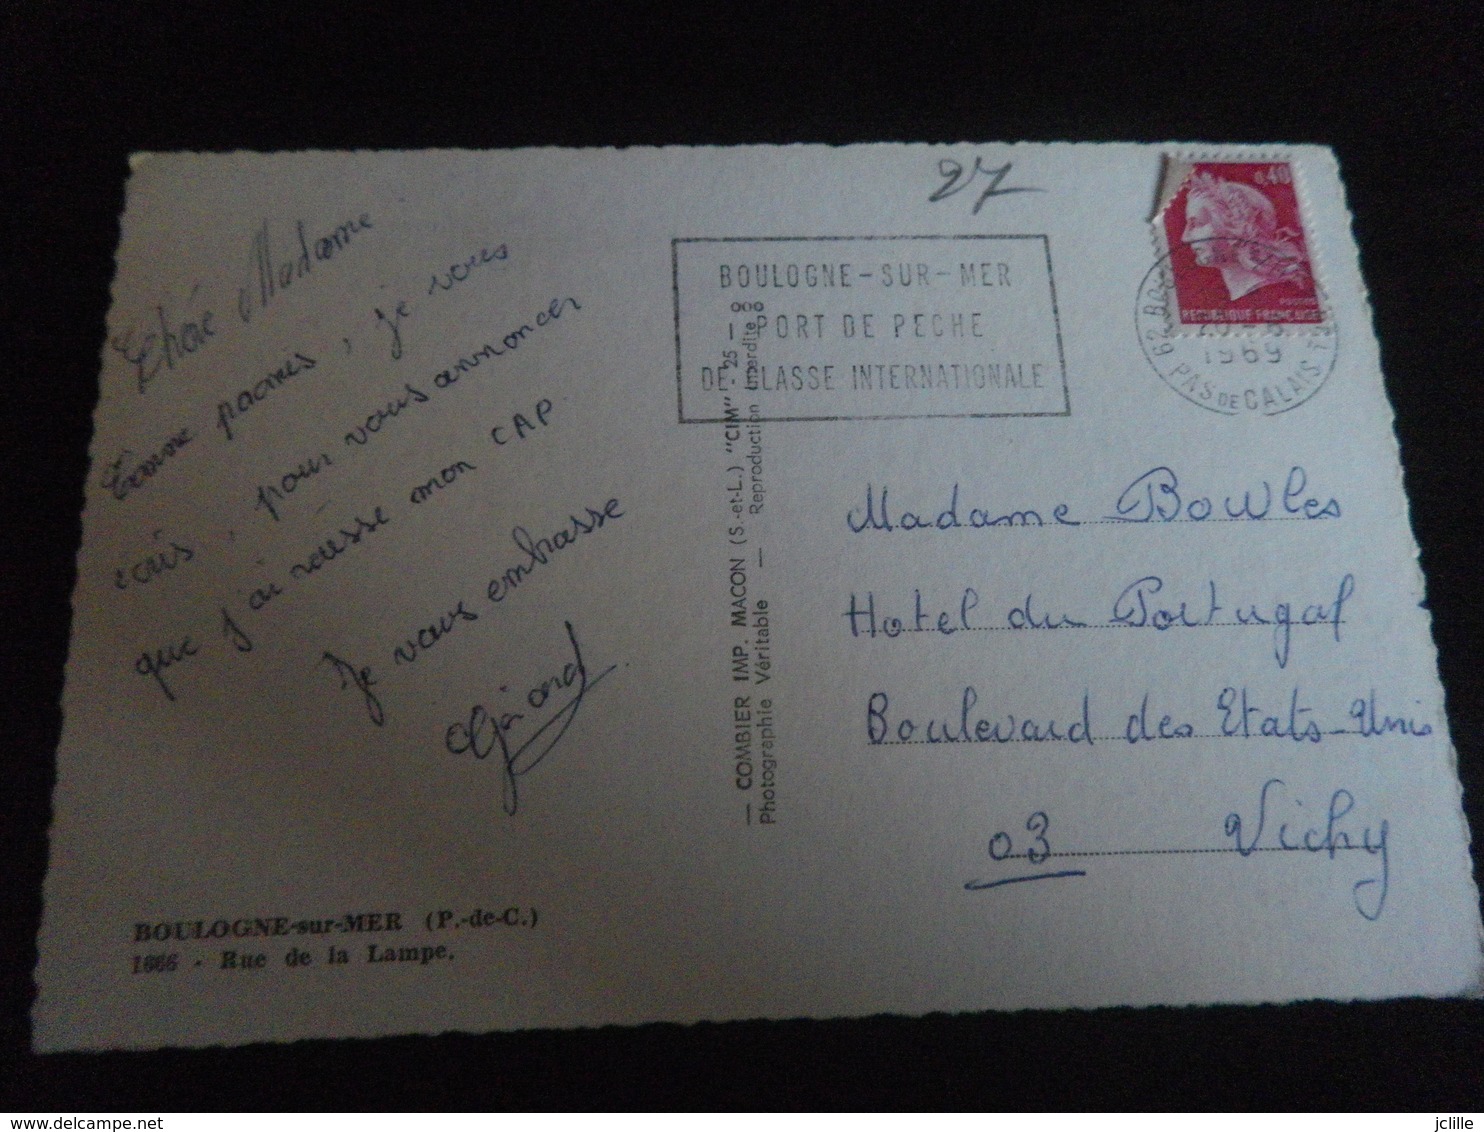 27
0,40
POSTES
REPUBLIQUE FRANÇAISE
BOULOGNE-SUR-MER
PORT DE PECHE
DE CLASSE INTERNATIONALE
1969
62
PAS DE CALAIS
Chère Madame
Comme promis, je vous
écris, pour vous annoncer
que j'ai réussie mon CAP
Je vous embrasse
Gérard
— COMBIER IMP. MACON (S.-et-L.) "CIM" - 25 -
Photographie Véritable — Reproduction Interdite
Madame Bowles
Hotel du Portugal
Boulevard des Etats-Unis
03 Vichy
BOULOGNE-sur-MER (P.-de-C.)
1666 - Rue de la Lampe.
jclille